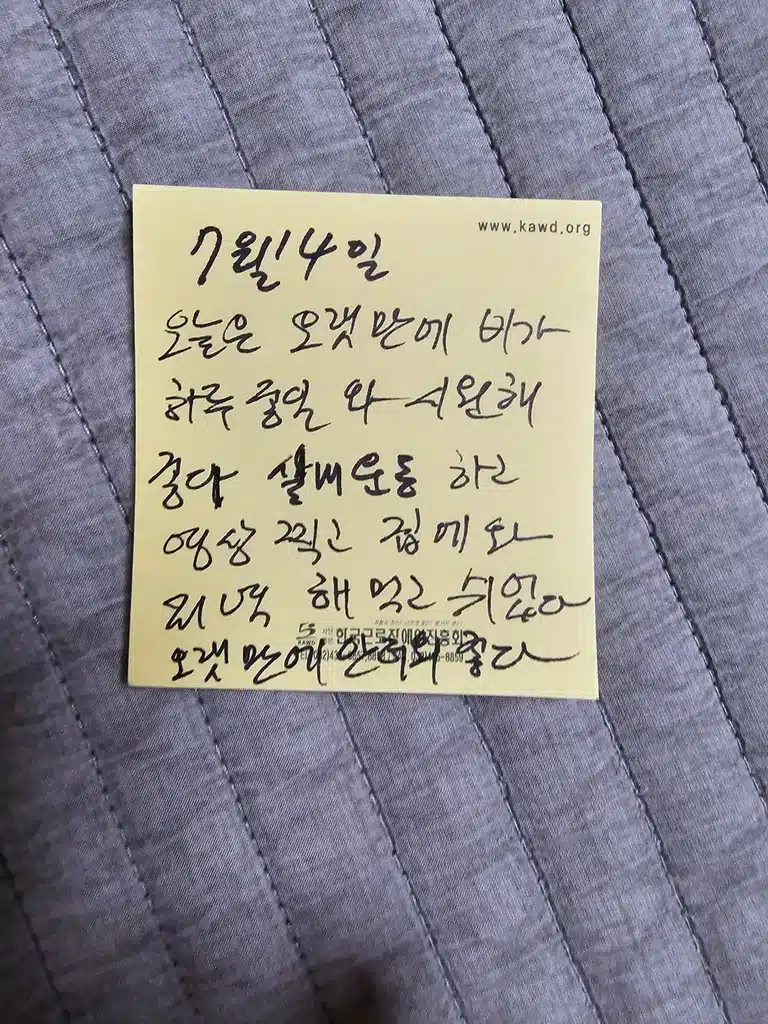 www.kawd.org
7월14일
오늘은 오랫만에 비가
하루 종일 와 시원해
좋다 실버운동 하고
영상 찍고 집에 와
저녁 해 먹고 쉬었다
KAWD 한국근로장애인진흥회
오랫만에 안더워 좋다